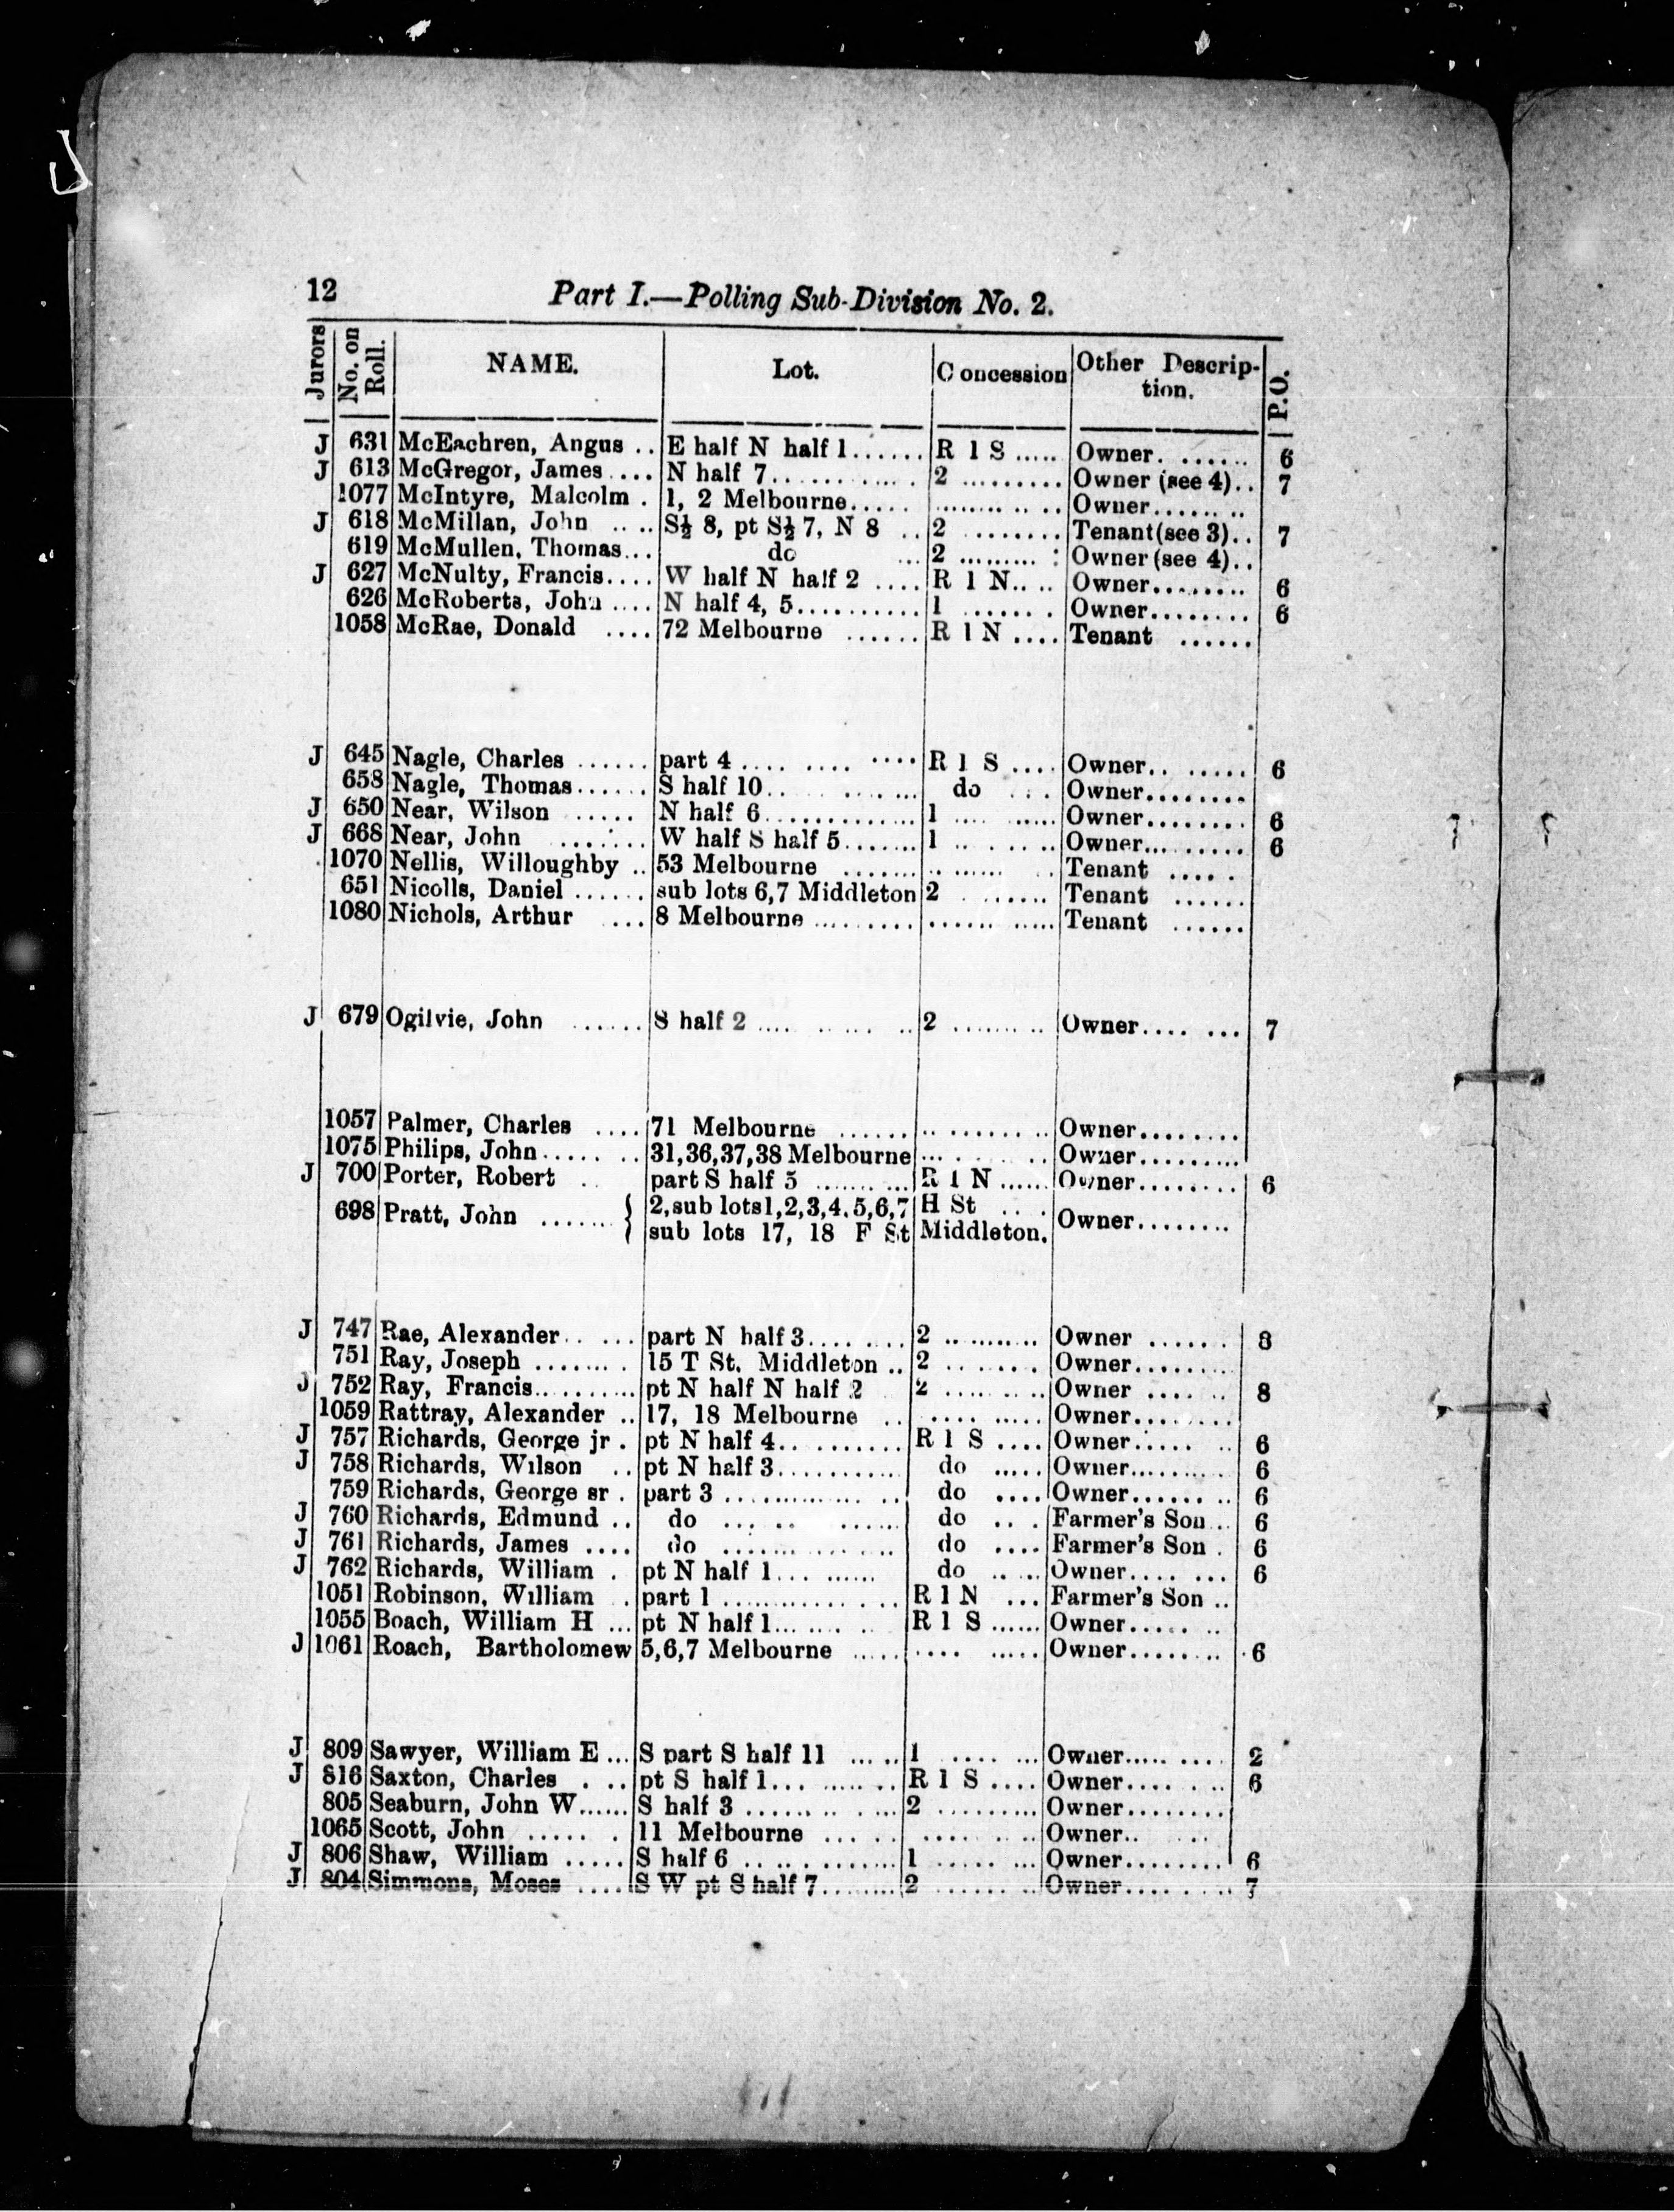 12 Part I.—Polling Sub-Division No. 2.
Jurors No. on Roll. NAME. Lot. Concession Other Description. P.O.
J 631 McEachren, Angus .. E half N half 1...... R 1 S ..... Owner. ...... 6
J 613 McGregor, James.... N half 7............ 2 ......... Owner (see 4).. 7
1077 McIntyre, Malcolm . 1, 2 Melbourne..... ........... Owner........
J 618 McMillan, John .... S½ 8, pt S½ 7, N 8 .. 2 ........ Tenant(see 3).. 7
619 McMullen, Thomas... do ... 2 ......... Owner (see 4)..
J 627 McNulty, Francis.... W half N half 2 .... R 1 N.... Owner........ 6
626 McRoberts, John .... N half 4, 5.......... 1 ....... Owner........ 6
1058 McRae, Donald .... 72 Melbourne ...... R 1 N .... Tenant ......
J 645 Nagle, Charles ...... part 4 .... .... .... R 1 S .... Owner.. ..... 6
658 Nagle, Thomas...... S half 10.. ....... do ... Owner........
J 650 Near, Wilson ...... N half 6............. 1 .... ..... Owner........ 6
J 668 Near, John ....... W half S half 5....... 1 .. ...... Owner......... 6
1070 Nellis, Willoughby .. 53 Melbourne ....... .. ...... Tenant .....
651 Nicolls, Daniel ...... sub lots 6,7 Middleton 2 ....... Tenant ......
1080 Nichols, Arthur .... 8 Melbourne ......... ...... ..... Tenant ......
J 679 Ogilvie, John ...... S half 2 .... ...... .. 2 ........ .. Owner.... ... 7
1057 Palmer, Charles .... 71 Melbourne ...... .. ........ Owner........
1075 Philips, John..... .. 31,36,37,38 Melbourne ... ...... Owner.........
J 700 Porter, Robert .. part S half 5 ...... ... R 1 N ...... Owner........ 6
698 Pratt, John ....... { 2, sub lots 1,2,3,4,5,6,7 H St ... Owner........
sub lots 17, 18 F St Middleton.
J 747 Rae, Alexander.. ... part N half 3......... 2 .......... Owner ....... 8
751 Ray, Joseph ........ 15 T St. Middleton .. 2 ........ Owner........
J 752 Ray, Francis.......... pt N half N half 2 2 ......... Owner ...... 8
1059 Rattray, Alexander .. 17, 18 Melbourne .. .... ..... Owner........
J 757 Richards, George jr . pt N half 4.......... R 1 S .... Owner...... .. 6
J 758 Richards, Wilson .. pt N half 3.......... do ..... Owner.......... 6
759 Richards, George sr . part 3 ............ .. do .... Owner...... .. 6
J 760 Richards, Edmund .. do ...... ...... do .. . Farmer's Son .. 6
J 761 Richards, James .... do ............. do .... Farmer's Son . 6
J 762 Richards, William . pt N half 1... ...... do .. .. Owner.... ... 6
1051 Robinson, William .. part 1 .............. R 1 N ... Farmer's Son ..
1055 Boach, William H ... pt N half 1... .... .. R 1 S ...... Owner..... ..
J 1061 Roach, Bartholomew 5,6,7 Melbourne ..... .... ..... Owner........ 6
J 809 Sawyer, William E ... S part S half 11 ..... 1 .... ... Owner..... .... 2
J 816 Saxton, Charles . .. pt S half 1... ...... R 1 S .... Owner.... .. 6
805 Seaburn, John W...... S half 3 ....... .. ... 2 ......... Owner........
1065 Scott, John ..... . 11 Melbourne .... .. ......... Owner.. ..
J 806 Shaw, William ..... S half 6 .. ......... 1 ..... ... Owner........ 6
J 804 Simmons, Moses .... S W pt S half 7........ 2 ........ Owner........ 7